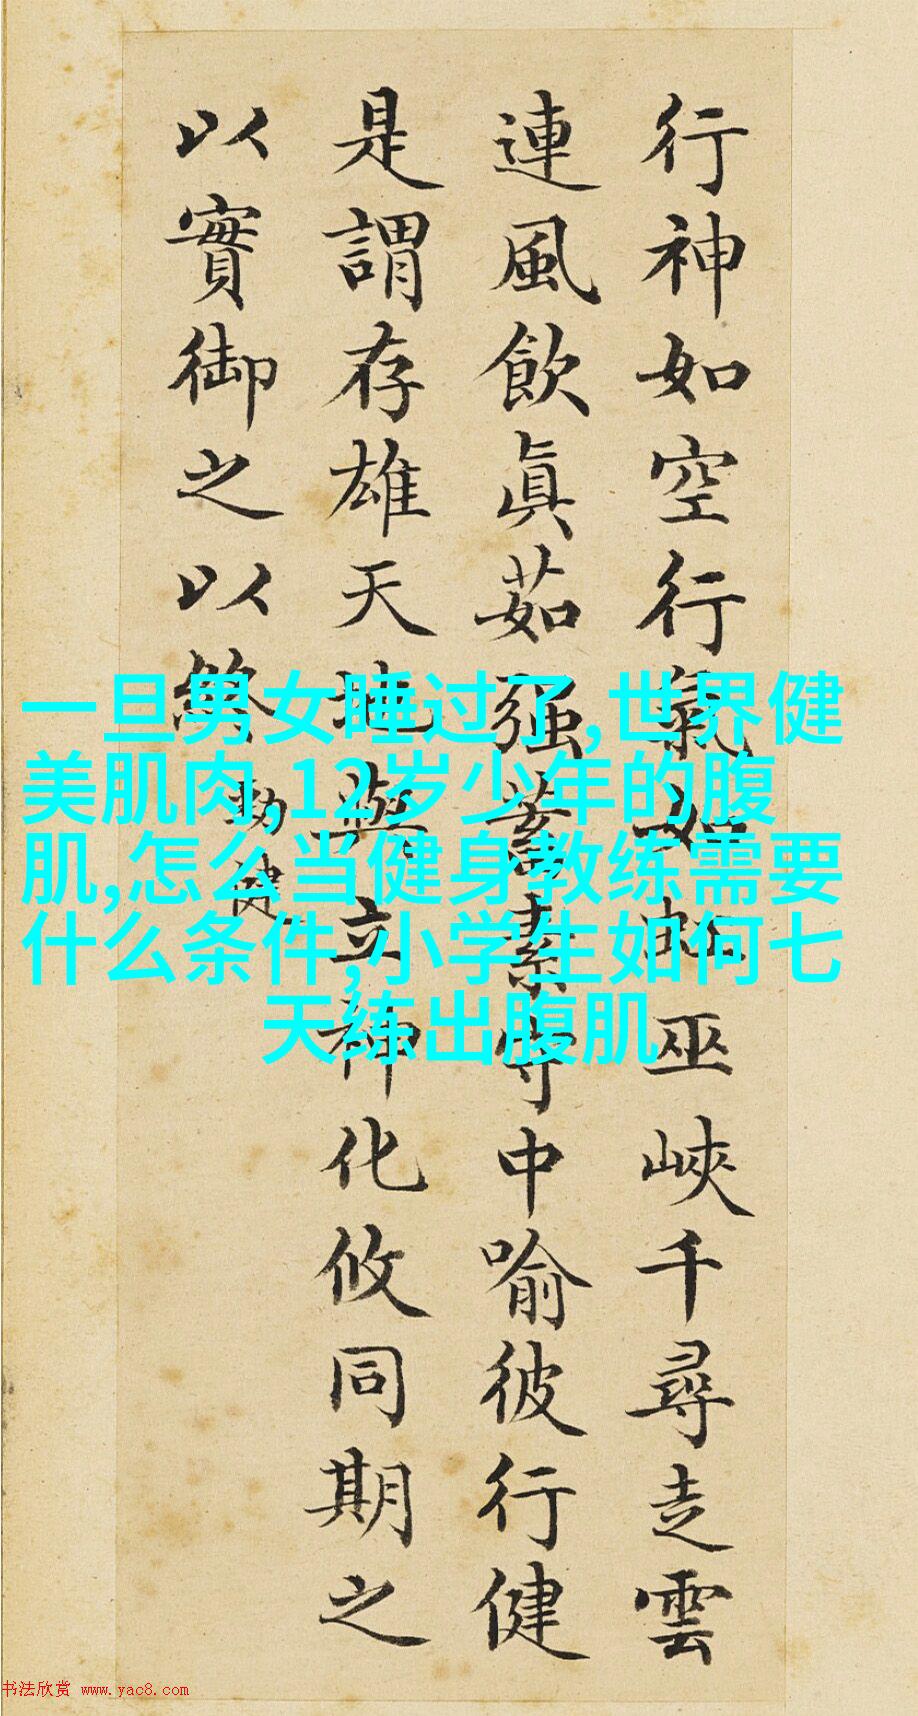 行神如空行氣如虹巫峽千尋走雲
連風飲眞茹强蓄素守中喻彼行健
是謂存雄天地與立神化攸同期之
以實御之以終
勁健
一旦男女睡过了,世界健
美肌肉,12岁少年的腹
肌,怎么当健身教练需要
什么条件,小学生如何七
天练出腹肌
书法欣赏 www.yac8.com